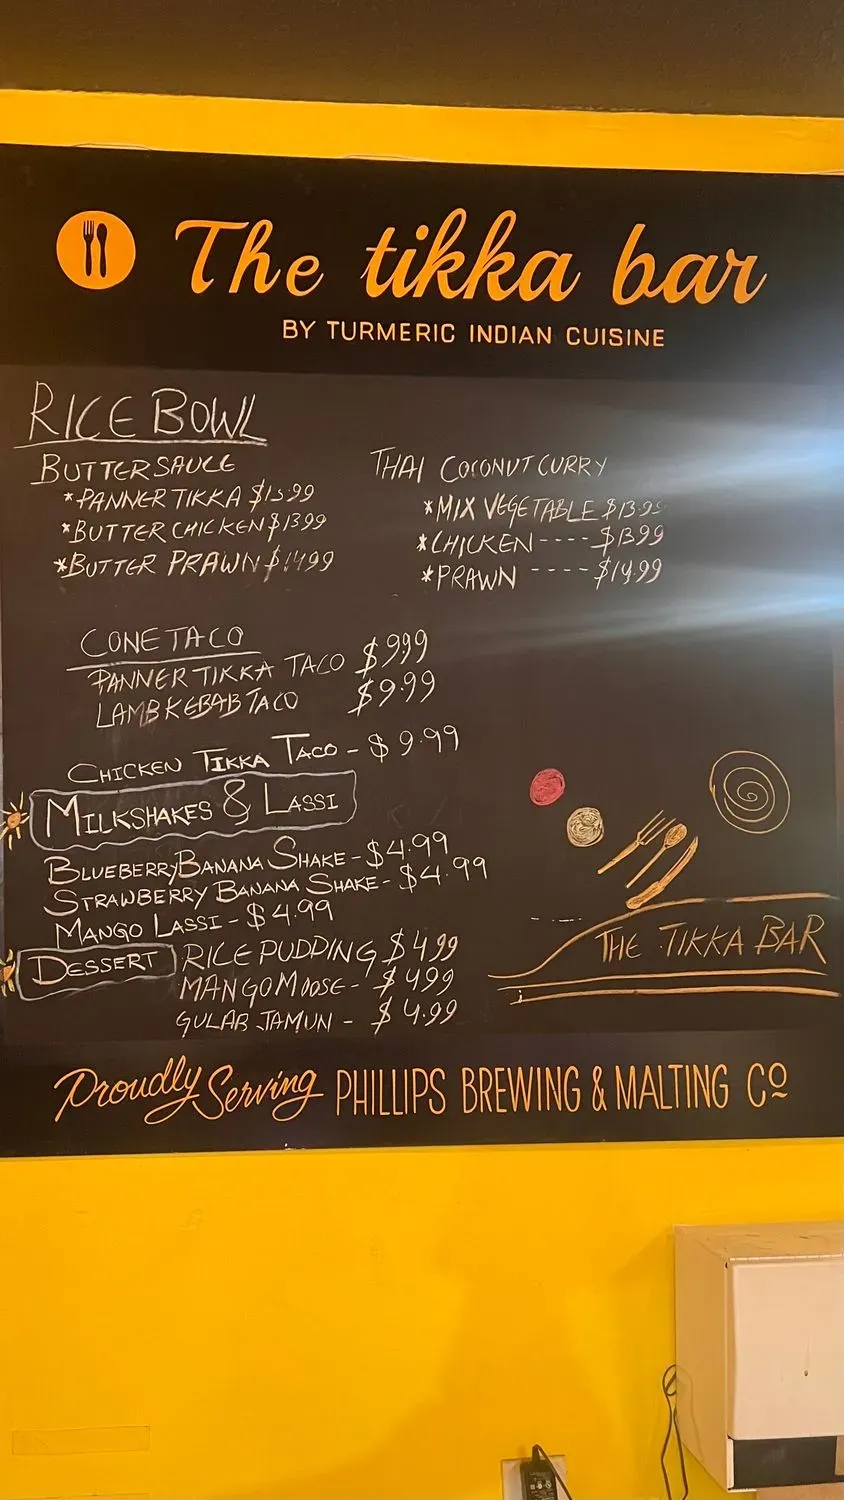 The tikka bar
BY TURMERIC INDIAN CUISINE
RICE BOWL
BUTTER SAUCE
*PANNER TIKKA $13.99
*BUTTER CHICKEN $13.99
*BUTTER PRAWN $14.99
THAI COCONUT CURRY
*MIX VEGETABLE $13.99
*CHICKEN ---- $13.99
*PRAWN ---- $14.99
CONE TACO
PANNER TIKKA TACO $9.99
LAMB KEBAB TACO $9.99
CHICKEN TIKKA TACO - $9.99
MILKSHAKES & LASSI
BLUEBERRY BANANA SHAKE - $4.99
STRAWBERRY BANANA SHAKE - $4.99
MANGO LASSI - $4.99
DESSERT RICE PUDDING $4.99
MANGO MOOSE - $4.99
GULAB JAMUN - $4.99
THE TIKKA BAR
Proudly Serving PHILLIPS BREWING & MALTING Co